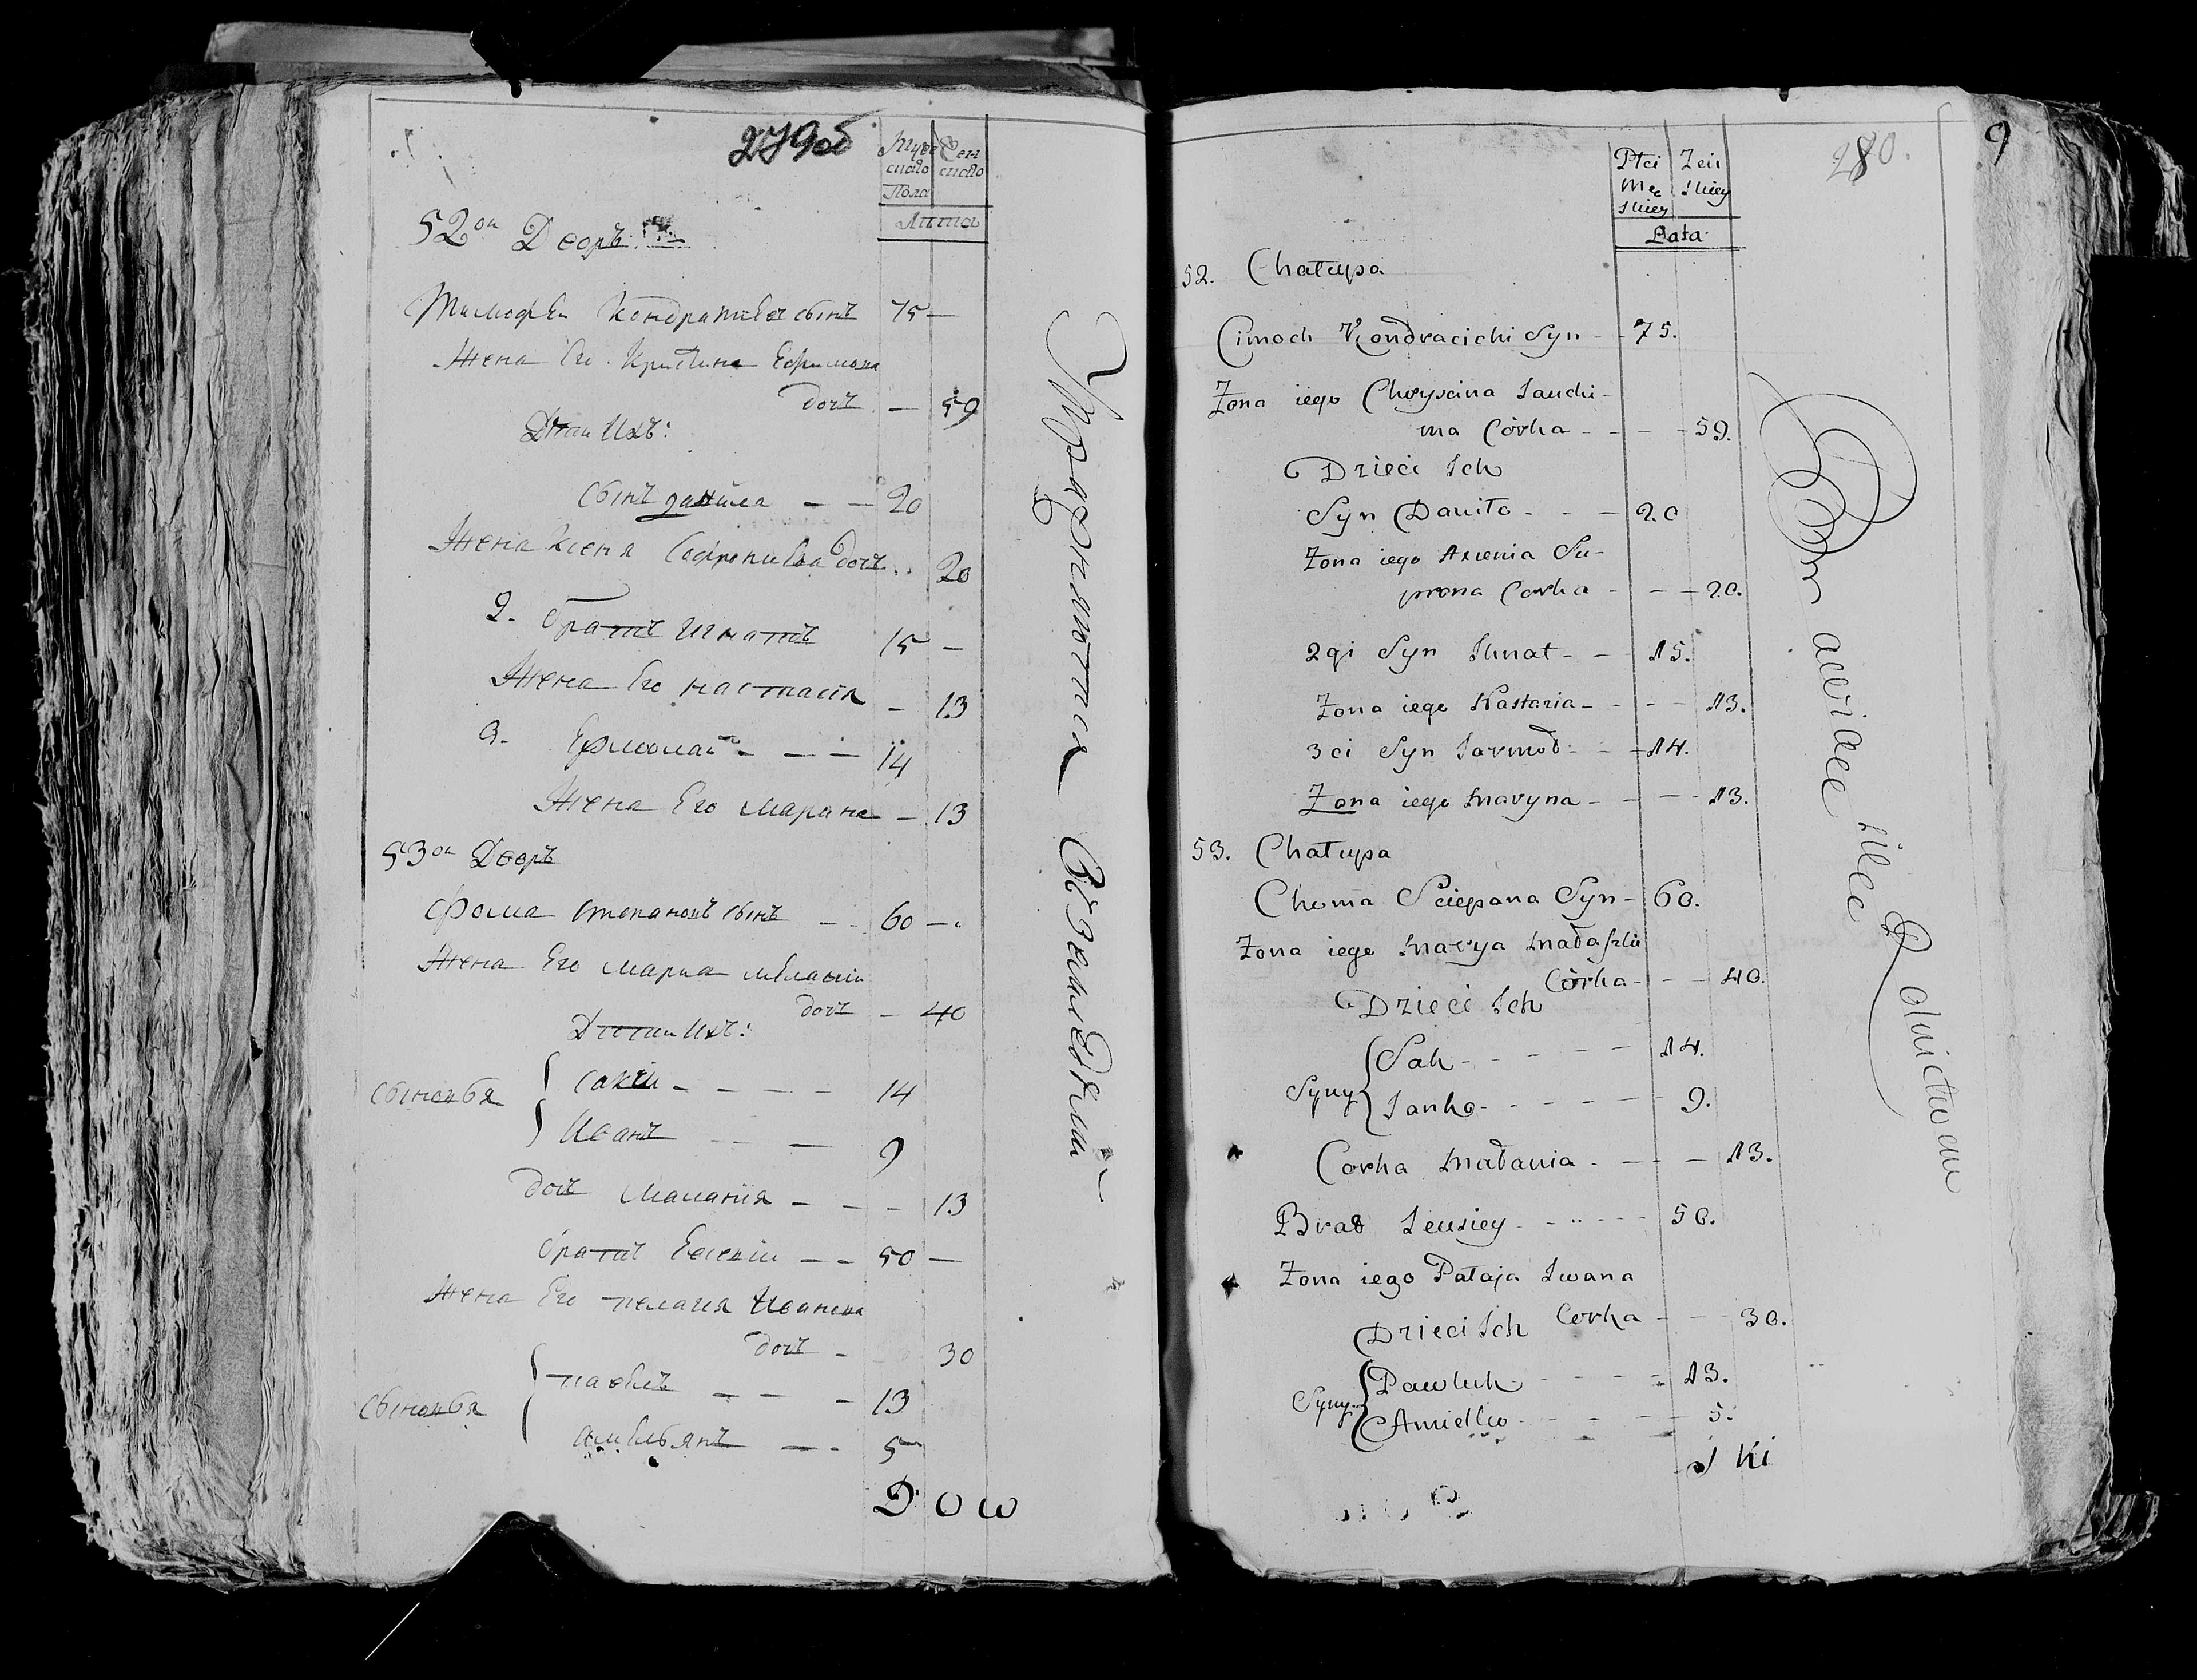 279об
Муже Жен
ска͠го ска͠го
Пола
Лѣта
52ои Дворъ
Тимофеи Кондратьевъ сынъ 75 —
Жена Его Кристина Ефимова
дочь — 59
Дѣти Ихъ:
Сынъ данила — — 20
Жена ксеня Софронивва дочь 20
2. братъ Игнатъ 15 —
Жена Его настасія — 13
3. Ермолаи — — — 14
Жена Его Марина — 13
53ои Дворъ
Фома Степановъ сынъ — — 60 —
Жена Его Мариа
дочь — 40
Дѣти Ихъ:
Сыновья { Сакей — — — — 14
Иванъ — — — 9
дочь Малания — — — 13
братъ Евсеи — — 50 —
Жена Его пелагея Иванова
дочь — 30
Сыновья { павелъ — — — 13
амельянъ — — 5
Dow
280. 9
Płci Żeń
Mę skiey
skiey
Lata
52. Chałupa
Cimoch Kondracichi Syn - - 75.
Żona iego Chryscina Jauchi-
ma Córka - - - - 59.
Dzieci Ich
Syn Daniło - - - 20
Żona iego Axenia Su-
prona Corka - - - 20.
2gi Syn Ihnat - - 15.
Żona iego Nastazia - - - - 13.
3ci Syn Jarmoł - - - 14.
Żona iego Maryna - - - - 13.
53. Chałupa
Choma Sciepana Syn - 60.
Żona iego Marya
Córka - - - 40.
Dzieci Ich
Syny { Sak - - - - - 14.
Janko - - - - - - 9.
Corka Małania - - - - 13.
Brat Jeusiey - - - - - 50.
Żona iego Pałaja Iwana
Corka - - - 30.
Dzieci Ich
Syny { Pawluk - - - - - 13.
Amiellio - - - - - 5.
ski